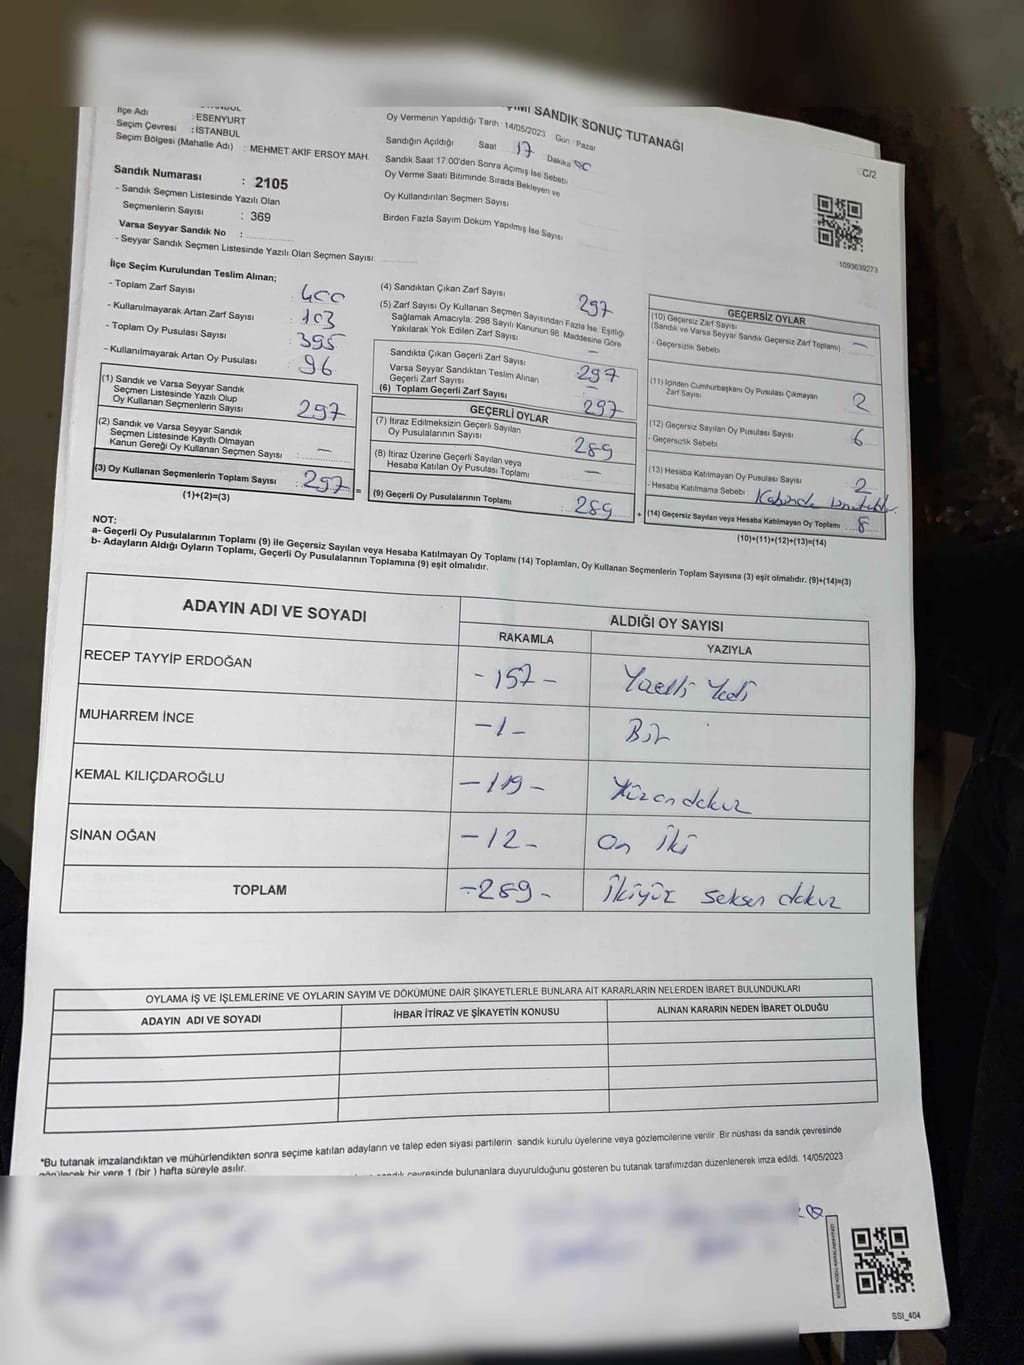 SANDIK SONUÇ TUTANAĞI
C/2
İlçe Adı : ESENYURT
Seçim Çevresi : İSTANBUL
Seçim Bölgesi (Mahalle Adı) : MEHMET AKİF ERSOY MAH.
Oy Vermenin Yapıldığı Tarih 14/05/2023 Gün : Pazar
Sandığın Açıldığı Saat 17 Dakika 00
Sandık Saat 17:00'den Sonra Açılmış İse Sebebi
Oy Verme Saati Bitiminde Sırada Bekleyen ve
Oy Kullandırılan Seçmen Sayısı
Birden Fazla Sayım Döküm Yapılmış İse Sayısı
1093639273
Sandık Numarası : 2105
- Sandık Seçmen Listesinde Yazılı Olan
Seçmenlerin Sayısı : 369
Varsa Seyyar Sandık No :
- Seyyar Sandık Seçmen Listesinde Yazılı Olan Seçmen Sayısı:
İlçe Seçim Kurulundan Teslim Alınan;
- Toplam Zarf Sayısı : 400
- Kullanılmayarak Artan Zarf Sayısı : 103
- Toplam Oy Pusulası Sayısı : 395
- Kullanılmayarak Artan Oy Pusulası : 96
(1) Sandık ve Varsa Seyyar Sandık
Seçmen Listesinde Yazılı Olup
Oy Kullanan Seçmenlerin Sayısı : 297
(2) Sandık ve Varsa Seyyar Sandık
Seçmen Listesinde Kayıtlı Olmayan
Kanun Gereği Oy Kullanan Seçmen Sayısı : -
(3) Oy Kullanan Seçmenlerin Toplam Sayısı : 297 =
(1)+(2)=(3)
(4) Sandıktan Çıkan Zarf Sayısı 297
(5) Zarf Sayısı Oy Kullanan Seçmen Sayısından Fazla İse. Eşitliği
Sağlamak Amacıyla: 298 Sayılı Kanunun 98. Maddesine Göre
Yakılarak Yok Edilen Zarf Sayısı -
Sandıkta Çıkan Geçerli Zarf Sayısı : 297
Varsa Seyyar Sandıktan Teslim Alınan
Geçerli Zarf Sayısı -
(6) Toplam Geçerli Zarf Sayısı 297
GEÇERLİ OYLAR
(7) İtiraz Edilmeksizin Geçerli Sayılan
Oy Pusulalarının Sayısı : 289
(8) İtiraz Üzerine Geçerli Sayılan veya
Hesaba Katılan Oy Pusulası Toplamı : -
(9) Geçerli Oy Pusulalarının Toplamı : 289 +
GEÇERSİZ OYLAR
(10) Geçersiz Zarf Sayısı
(Sandık ve Varsa Seyyar Sandık Geçersiz Zarf Toplamı) -
- Geçersizlik Sebebi
(11) İçinden Cumhurbaşkanı Oy Pusulası Çıkmayan
Zarf Sayısı 2
(12) Geçersiz Sayılan Oy Pusulası Sayısı 6
- Geçersizlik Sebebi
(13) Hesaba Katılmayan Oy Pusulası Sayısı : 2
- Hesaba Katılmama Sebebi : Kabinde
(14) Geçersiz Sayılan veya Hesaba Katılmayan Oy Toplamı : 8
(10)+(11)+(12)+(13)=(14)
NOT:
a- Geçerli Oy Pusulalarının Toplamı (9) ile Geçersiz Sayılan veya Hesaba Katılmayan Oy Toplamı (14) Toplamları, Oy Kullanan Seçmenlerin Toplam Sayısına (3) eşit olmalıdır. (9)+(14)=(3)
b- Adayların Aldığı Oyların Toplamı, Geçerli Oy Pusulalarının Toplamına (9) eşit olmalıdır.
ADAYIN ADI VE SOYADI ALDIĞI OY SAYISI
RAKAMLA YAZIYLA
RECEP TAYYİP ERDOĞAN - 157 - Yüzelli Yedi
MUHARREM İNCE - 1 - Bir
KEMAL KILIÇDAROĞLU - 119 - Yüzondokuz
SİNAN OĞAN - 12 - On İki
TOPLAM - 289 - İkiyüz seksen dokuz
OYLAMA İŞ VE İŞLEMLERİNE VE OYLARIN SAYIM VE DÖKÜMÜNE DAİR ŞİKAYETLERLE BUNLARA AİT KARARLARIN NELERDEN İBARET BULUNDUKLARI
ADAYIN ADI VE SOYADI İHBAR İTİRAZ VE ŞİKAYETİN KONUSU ALINAN KARARIN NEDEN İBARET OLDUĞU
*Bu tutanak imzalandıktan ve mühürlendikten sonra seçime katılan adayların ve talep eden siyasi partilerin sandık kurulu üyelerine veya gözlemcilerine verilir. Bir nüshası da sandık çevresinde
görülecek bir yere 1 (bir) hafta süreyle asılır. sandık çevresinde bulunanlara duyurulduğunu gösteren bu tutanak tarafımızdan düzenlenerek imza edildi. 14/05/2023
SSI_404